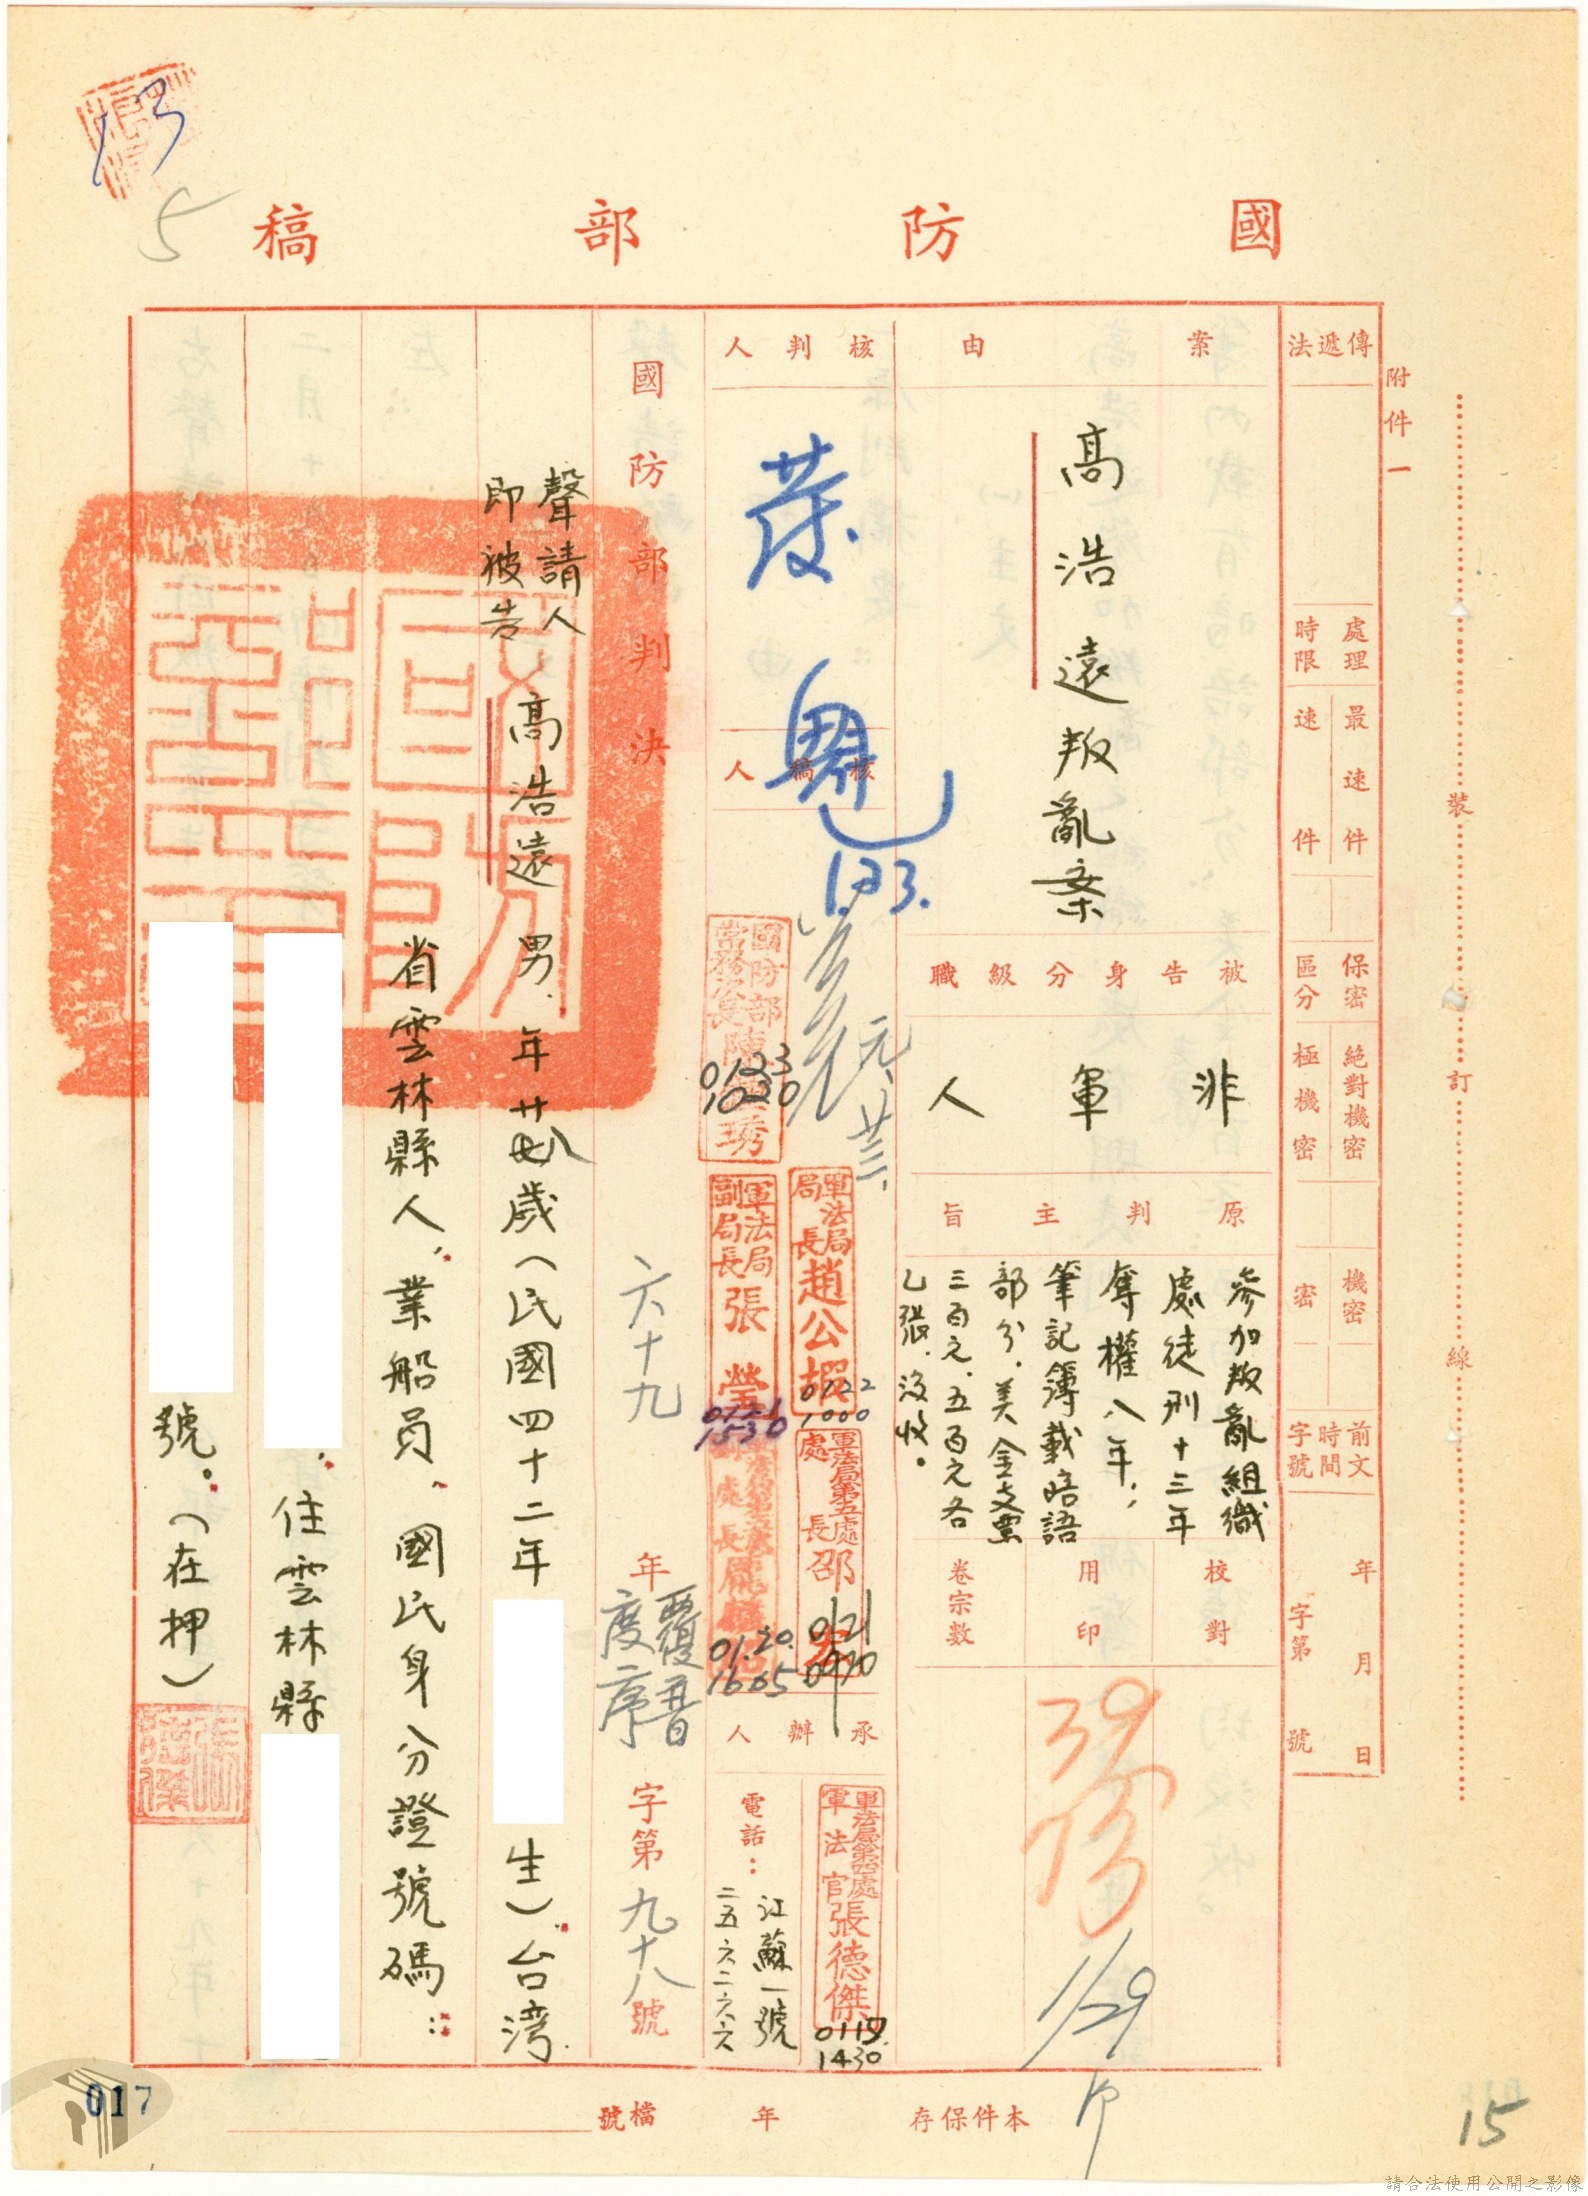 國防部稿
附件一
裝
訂
線
傳遞法
處理時限
最速件
速件
保密區分
絕對機密
極機密
機密
密
前文時間字號
年月日
字第號
案由
高浩遠叛亂案
被告身分級職
非軍人
原判主旨
參加叛亂組織
處徒刑十三年
奪權八年，
筆記簿載暗語
部分，美金支票
三百元、五百元各
乙張，沒收。
校對
用印
卷宗數
1/29
核判人
1.23.
核稿人
元、廿三、
國防部常務次長陳
0123
1020
軍法局局長趙公嘏
0122
1000
軍法局副局長張瑩
0121
1530
軍法局第五處處長邵
0121
0910
01.20.
1605
承辦人
軍法局第四處軍法官張德傑
0119.
1430
電話：
江蘇一號
二五六二六六
國防部判決
六十九年
覆普度序
字第九十八號
聲請人
即被告
高浩遠 男、年廿八歲（民國四十二年
生）、台灣
省雲林縣人、業船員、國民身分證號碼：
、住雲林縣
號。（在押）
張德傑
本件保存 年
檔號
13
5
017
15
請合法使用公開之影像